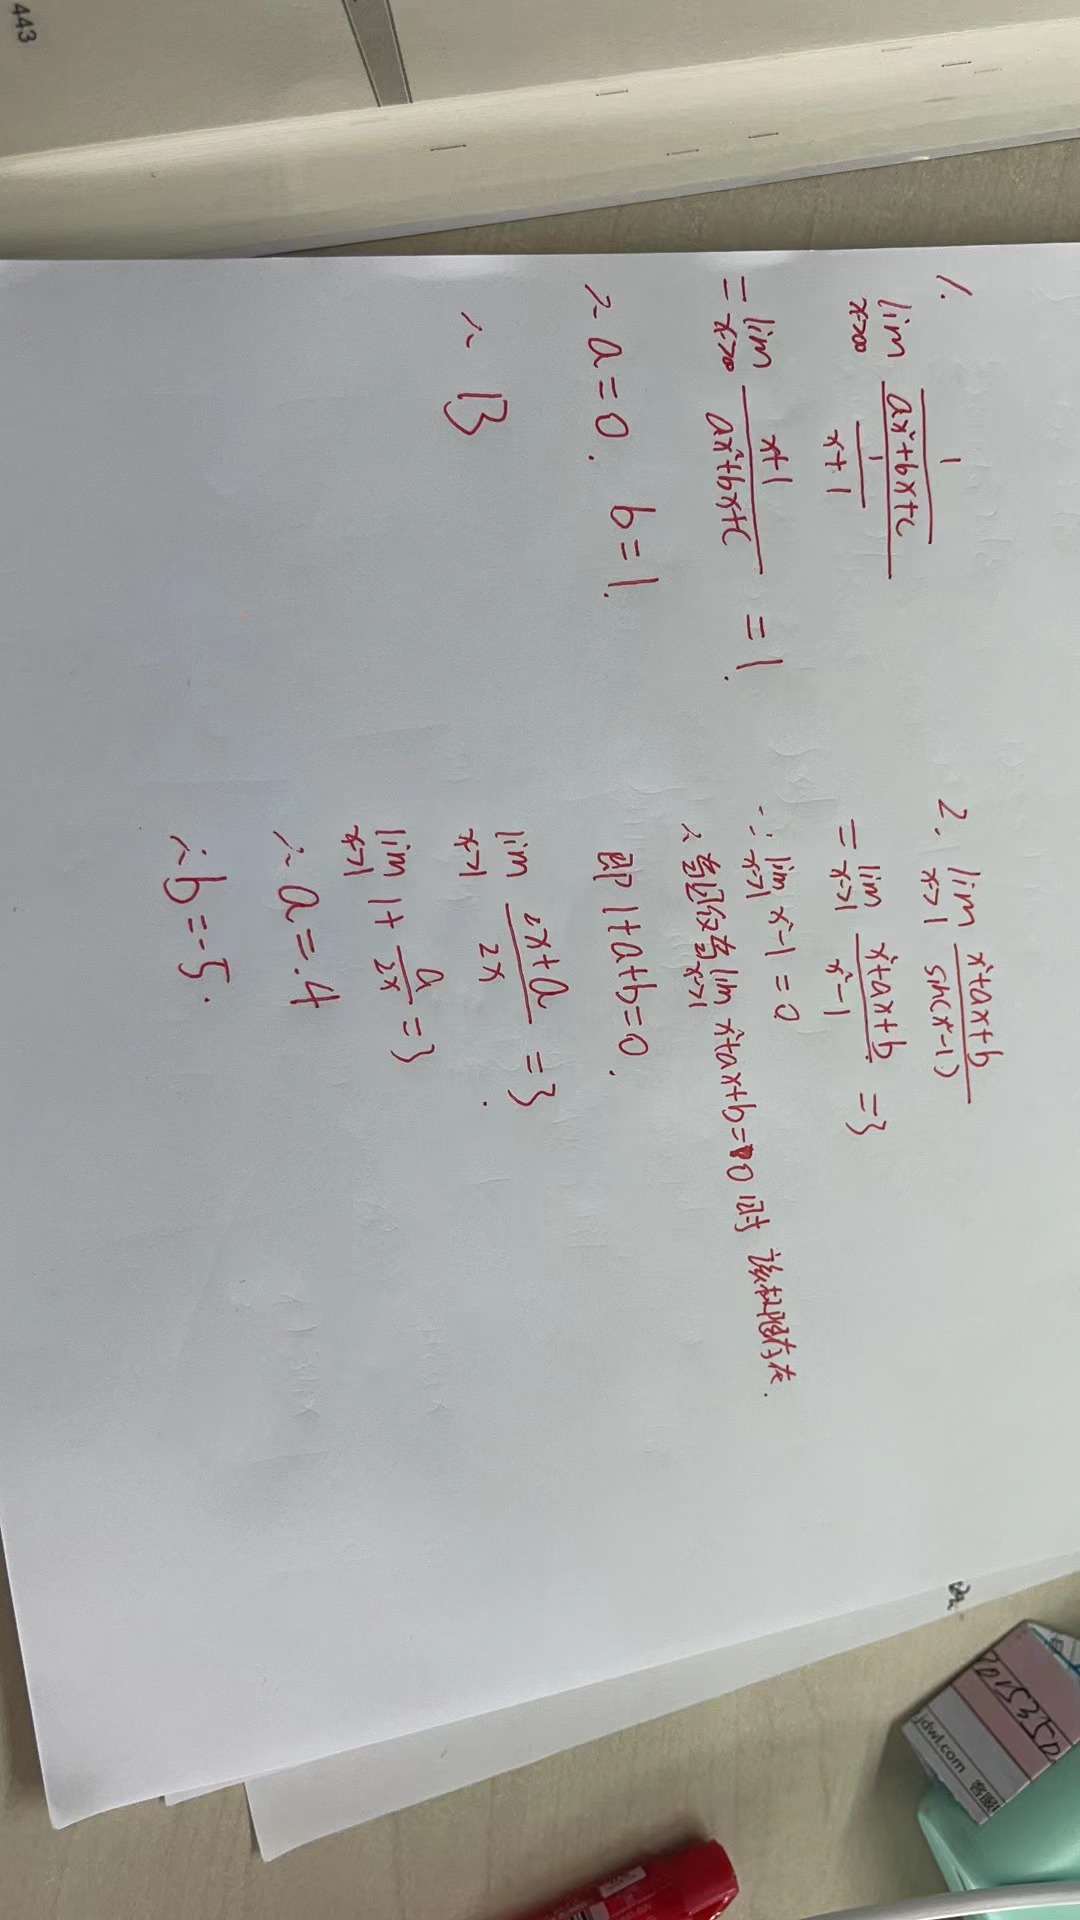 443
1.
lim x→∞ (1/(ax²+bx+c))/(1/(x+1))
= lim x→∞ (x+1)/(ax²+bx+c) = 1.
∴ a=0. b=1.
∴ B
2. lim x→1 (x²+ax+b)/sin(x²-1)
= lim x→1 (x²+ax+b)/(x²-1) =3
∵ lim x→1 x²-1=0
∴ 当且仅当 lim x→1 x²+ax+b=0时 该极限存在.
即 1+a+b=0.
lim x→1 (2x+a)/2x =3.
lim x→1 1+ a/2x =3
∴ a=4
∴ b=-5.
jdwl.com 客服